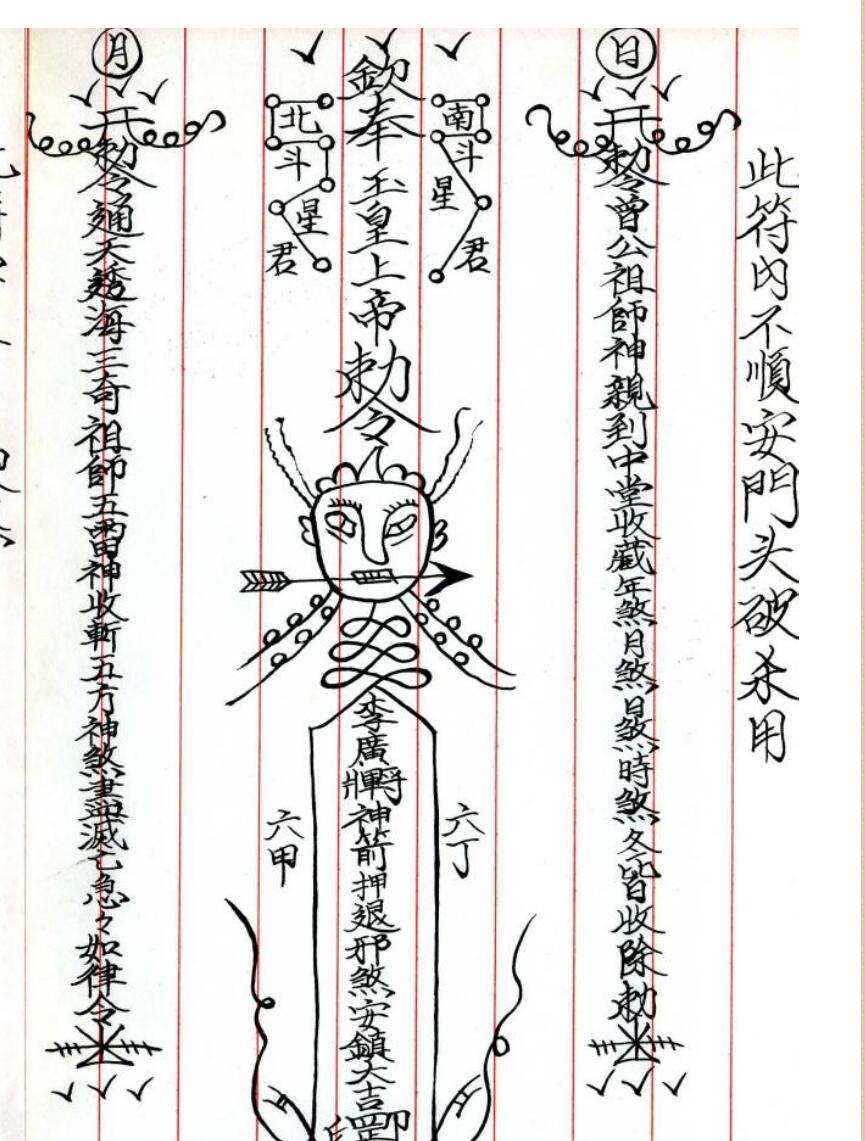 此符内不順安門头破杀用
日
勅令曾公祖師神親到中堂收藏年煞月煞日煞時煞各皆收除勅
南斗星君
欽奉玉皇上帝勅令
北斗星君
六丁
李廣將軍神箭押退邪煞安鎮大吉罡印
六甲
月
勅令通天透海三奇祖師五雷神收斬五方神煞盡皆滅亡急々如律令